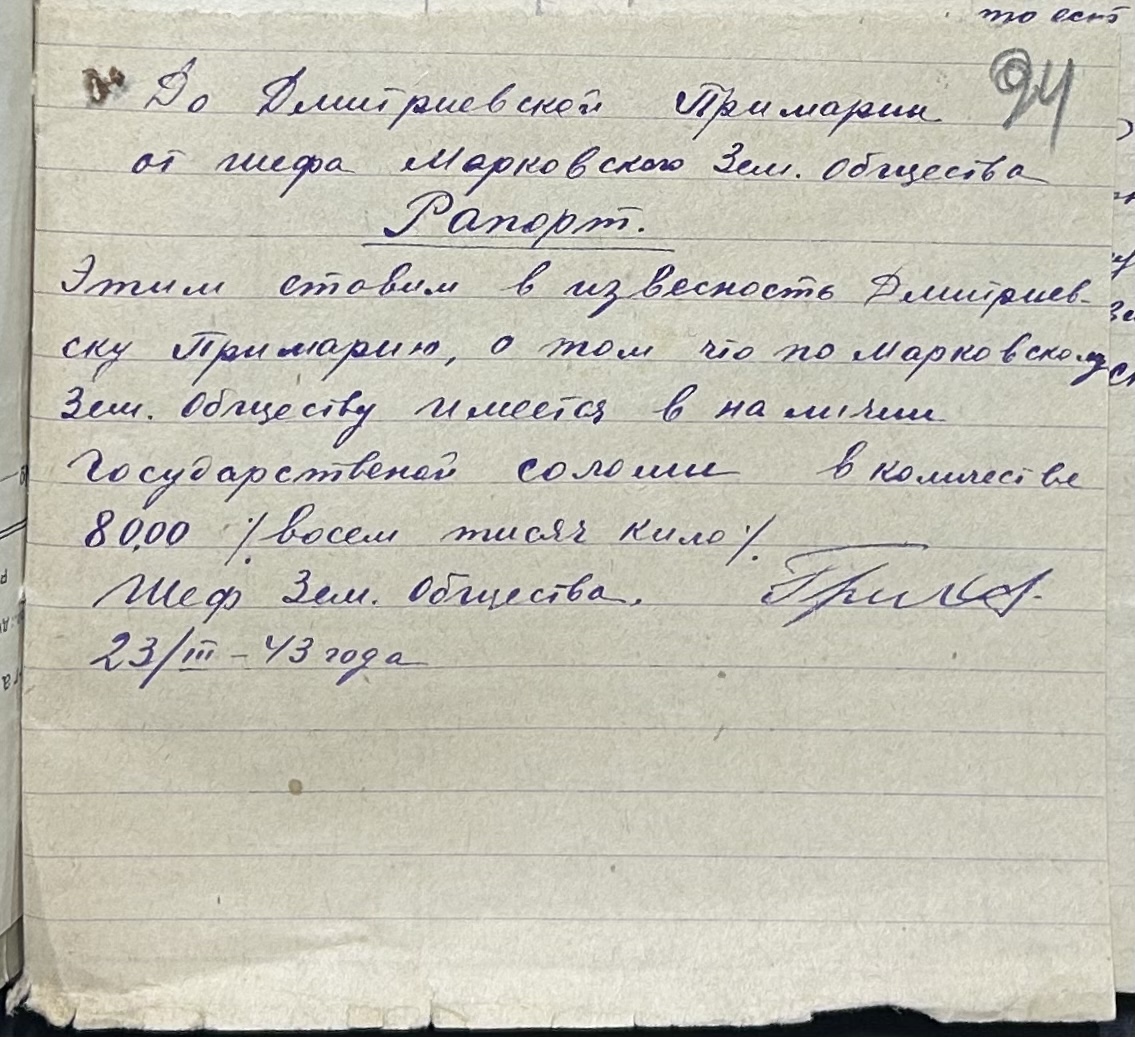 то есть
94
До Дмитриевской Примарии
от шефа Марковского Зем. Общества
Рапорт.
Этим ставим в извесность Дмитриев-
ску Примарию, о том что по Марковскому
Зем. Обществу имеется в наличии
Государственой соломи в количестве
8000 /восем тисяч кило/.
Шеф Зем. Общества.
23/III – 43 года